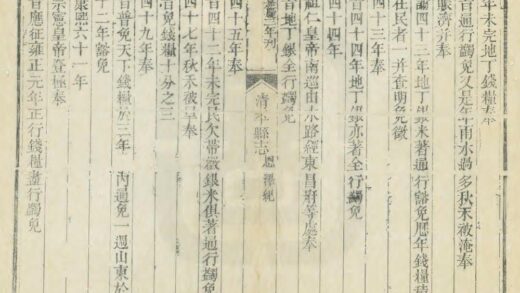 年未完地丁錢糧奉
旨通行蠲免又是年雨水過多秋禾被淹奉
賑濟并奉
諭四十三年地丁銀米著通行豁免歷年錢糧積
在民者一并查明免徵
四十三年奉
旨四十四年地丁銀亦著全行蠲免
四十四年
祖仁皇帝南巡由水路經東昌府等處奉
旨地丁銀全行蠲免
年刊
清平縣志
恩澤紀
四十五年奉
旨四十二年未完民欠帶徵銀米俱著通行蠲免
四十七年秋禾被旱奉
旨免錢糧十分之三
四十九年奉
旨普免天下錢糧於三年內通免一週山東於
十二年豁免
康熙六十一年
宗憲皇帝登極奉
旨應征雍正元年正行錢糧盡行蠲免